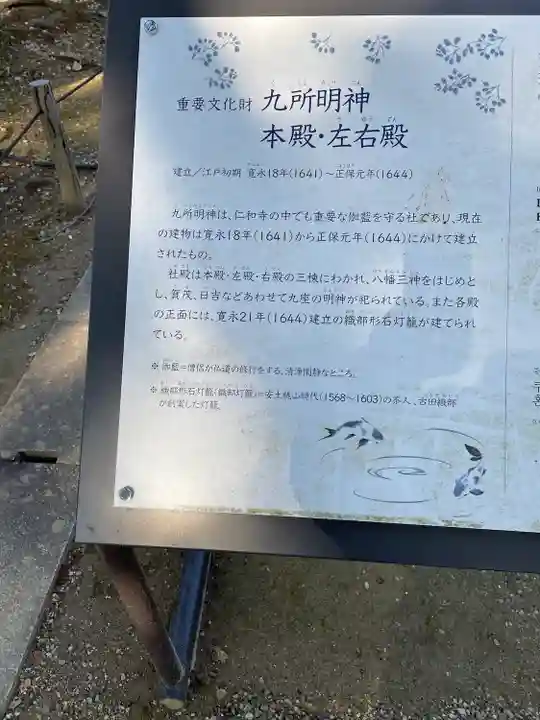 重要文化財 九所明神
本殿・左右殿
建立／江戸初期 寛永18年(1641)～正保元年(1644)
九所明神は、仁和寺の中でも重要な伽藍を守る社であり、現在
の建物は寛永18年(1641)から正保元年(1644)にかけて建立
されたもの。
社殿は本殿・左殿・右殿の三棟にわかれ、八幡三神をはじめと
し、賀茂、日吉などあわせて九座の明神が祀られている。また各殿
の正面には、寛永21年(1644)建立の織部形石灯籠が建てられ
ている。
※ 伽藍＝僧侶が仏道の修行をする、清浄閑静なところ。
※ 織部形石灯籠(織部灯籠)＝安土桃山時代(1568～1603)の茶人、古田織部
が創案した灯籠。